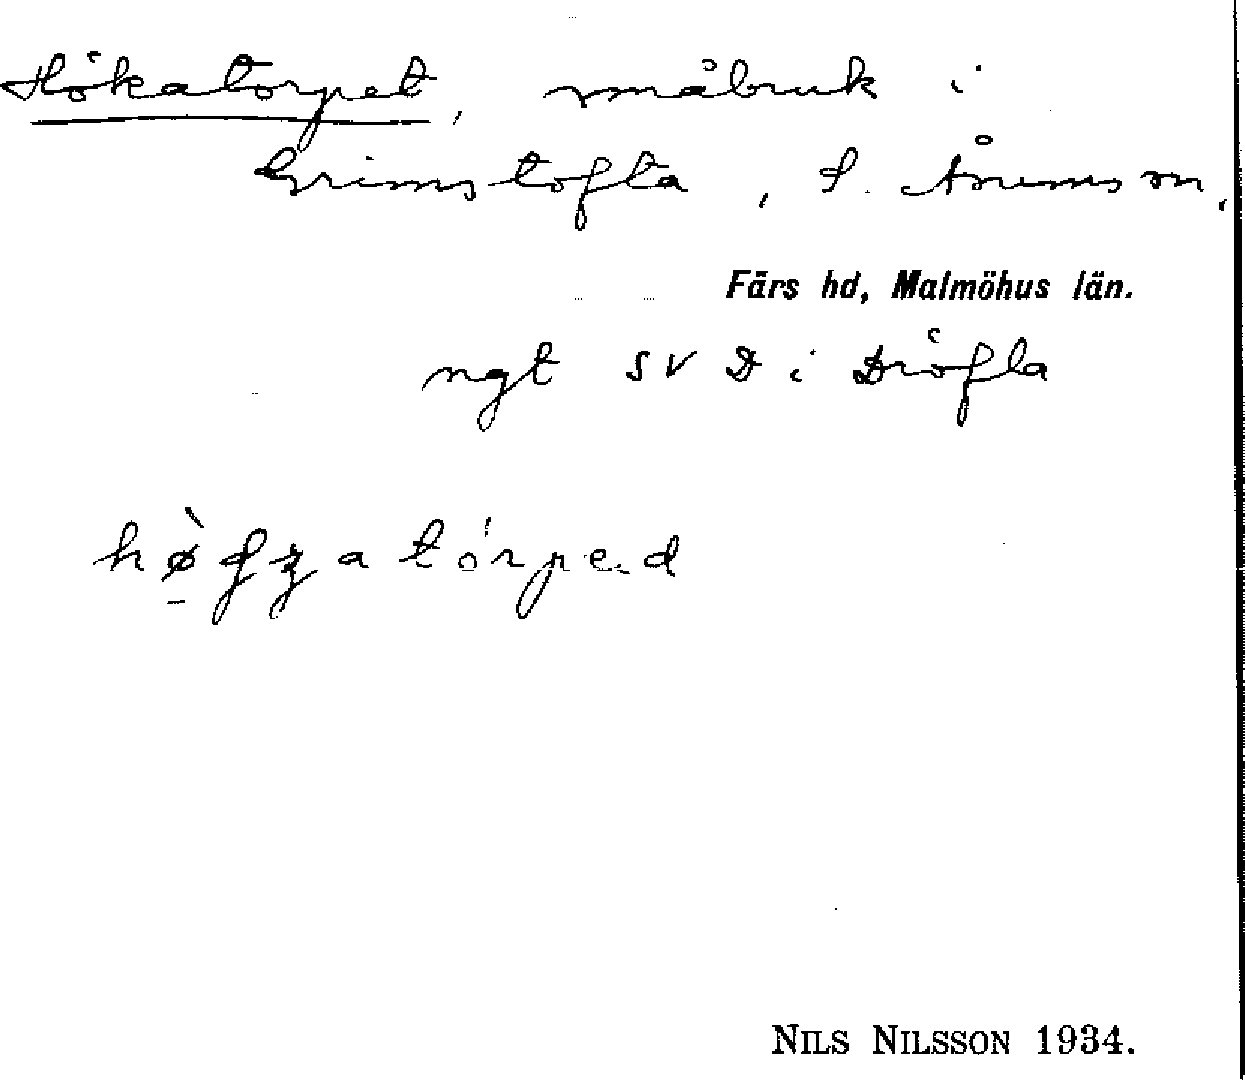 Hökatorpet, småbruk i
Grimstofta, S. Åsums sn,
Färs hd, Malmöhus län.
ngt SV D i Dröfla
NILS NILSSON 1934.